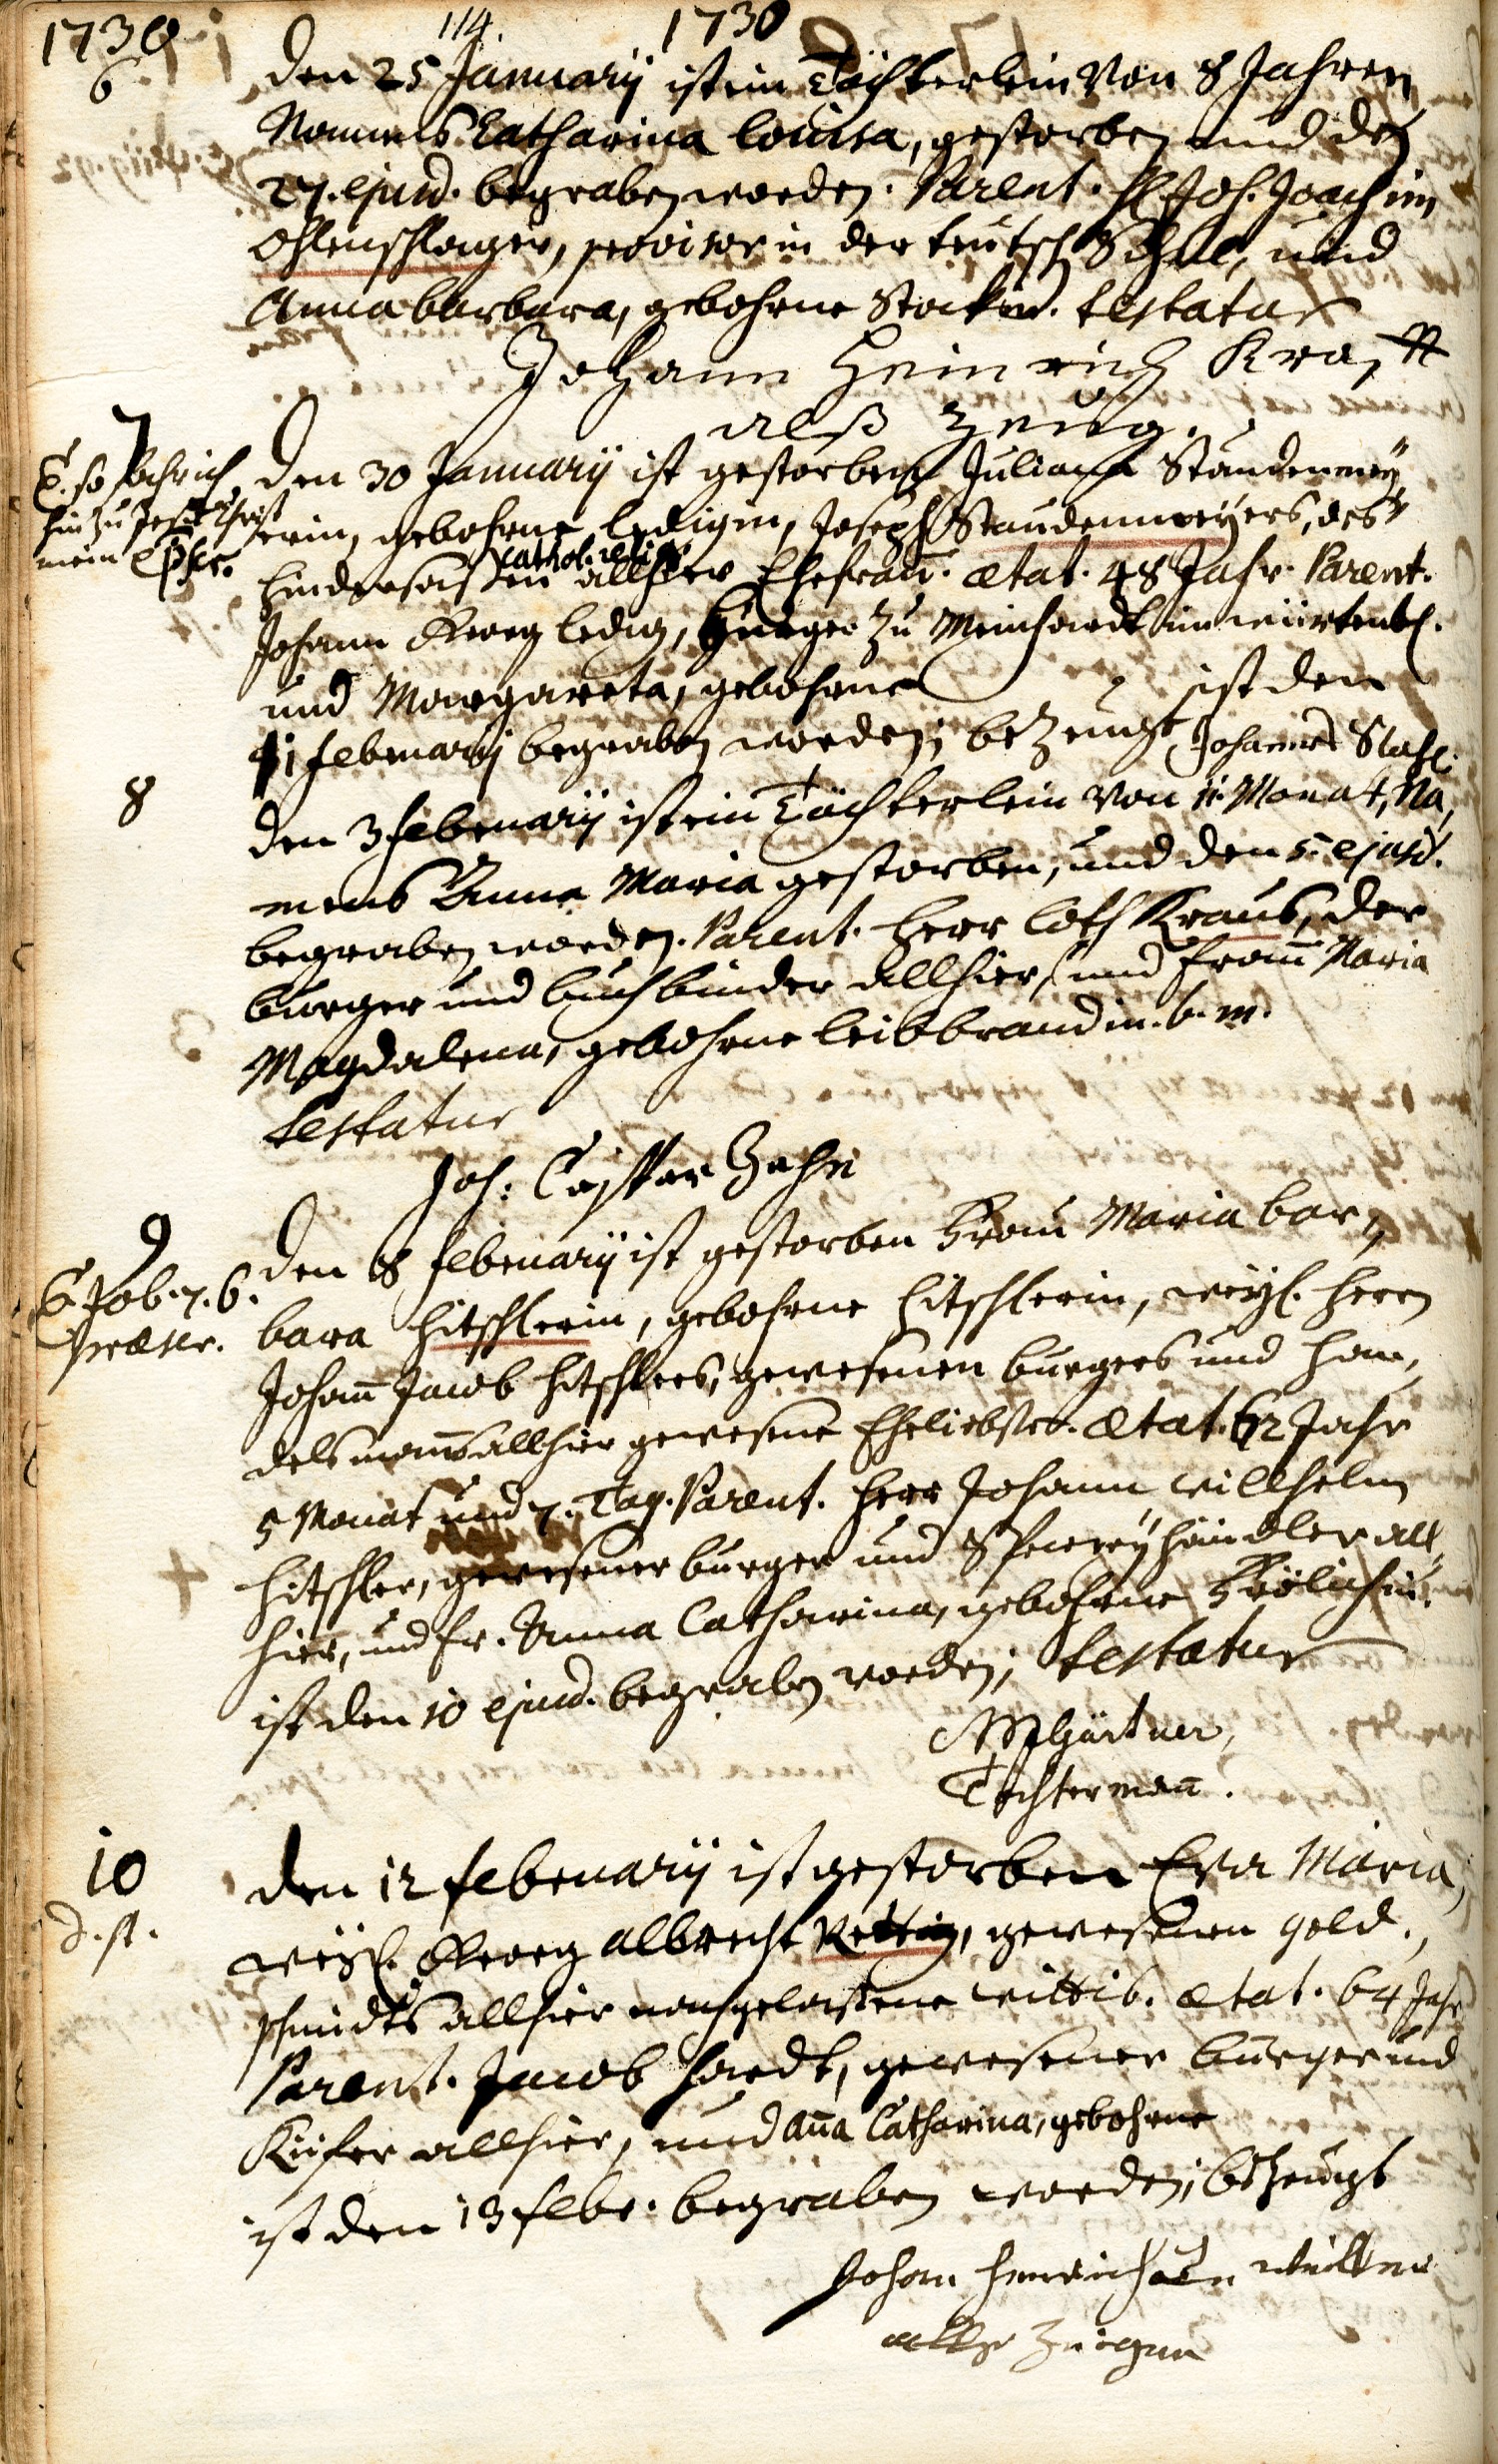 1730
114.
1730
6
den 25 Januarij ist ein Töchterlein von 8 Jahren
Namens Catharina Louisa, gestorben und den
27. ejusd. begraben worden. Parent. H. Joh. Joachim
Ohlenschlager, provisor in der teutsch Schul, und
Anna barbara, gebohrne Stockin. testatur
Johann Heinrich Krafft
alß zeug.
7
E. so fahr ich
hin zu Jesu Christ
mein
den 30 Januarij ist gestorben Juliana Staudenmey
erin, gebohrne Ledigin, Joseph Staudenmeyers, des
cathol. relig.
hindersaßen allhier Ehefrau. ætat. 48 Jahr. Parent.
Johann Georg Ledig, burger zu Meinhardt im würtenb.
und Margareta, gebohrne ist den
1 februarij begraben worden; bezeugt, Johannes Stahl.
8
den 3 februarij ist ein Töchterlein von 11 Monat, Na,
mens Anna Maria gestorben, und den 5. ejusd.
begraben worden. Parent. Herr Loth Kraus, der
burger und buchbinder allhier, und Frau Maria
Magdalena, gebohrne Leibbrandin. b. m.
testatur
Joh: Caspar Zahn
9
E. Job. 7. 6.
præscr.
den 8 februarij ist gestorben Frau Maria bar,
bara Hitschlerin, gebohrne Hitschlerin, weyl. Herrn
Johann Jacob Hitschlers, gewesenen burgers und han,
delsmanns allhier gewesene Eheliebste. ætat. 62 Jahr
5 Monat und 7. Tag. Parent. Herr Johann Willhelm
Hitschler, gewesener burger und Specereyhändler all,
hier, und Fr. Anna Catharina, gebohrne Frölichin.
ist den 10 ejusd. begraben worden; testatur
Gärtner,
Tochtermann.
10
d. st.
den 12 februarij ist gestorben Eva Maria,
weyl. Georg Albrecht Rettig, gewesenen Gold,
schmidts allhier nachgelaßene Wittib. ætat. 64 Jahr
Parent. Jacob Hardt, gewesener burger und
Küfer allhier, und Anna Catharina, gebohrne
ist den 13 febr. begraben worden; bezeugt
Johan Henrich
alls zeugen